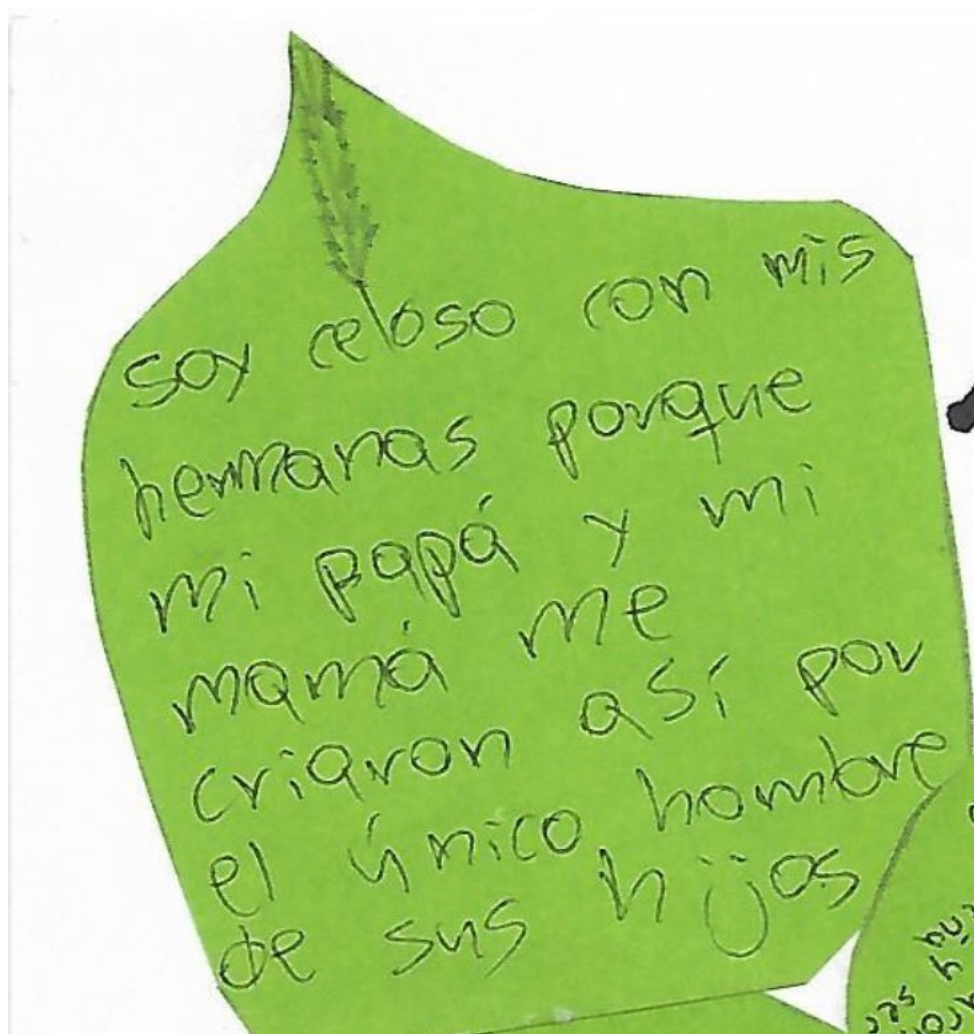 soy celoso con mis
hermanas porque
mi papá y mi
mamá me
criaron así por
el único hombre
de sus hijos